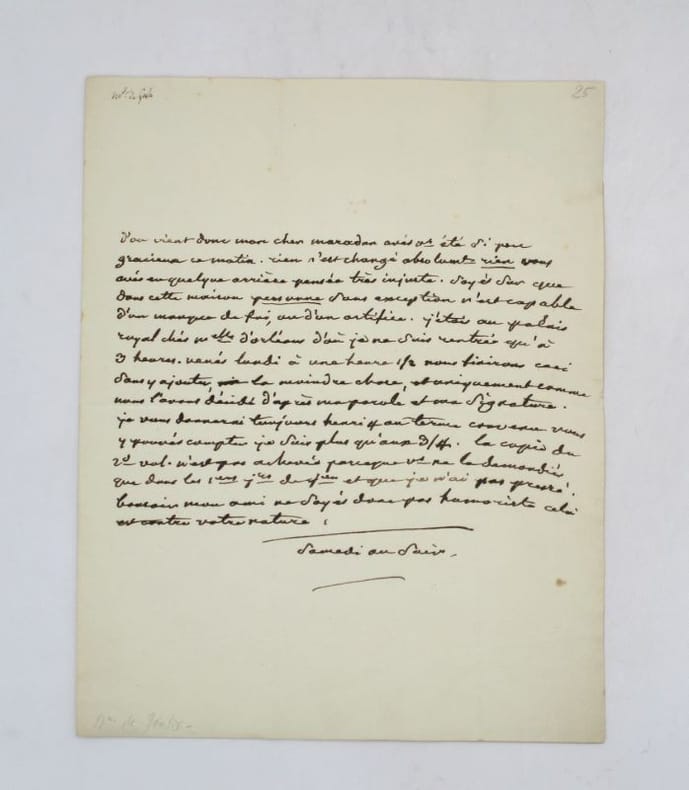 25
d'ou vient donc mon cher maradan avés vs été si peu
gracieux ce matin. rien n'est changé absolumt rien vous
avés eu quelque arrière pensée très injuste. soyés sur que
dans cette maison personne sans exception n'est capable
d'un manque de foi, ou d'un artifice. j'étois au palais
royal chés melle d'orléans d'où je ne suis rentrée qu'à
3 heures. venés lundi à une heure 1/2 nous finirons ceci
sans y ajouter, la moindre chose, et uniquement comme
nous l'avons décidé d'après ma parole et ma signature.
je vous donnerai toujours henri 4 au terme convenu vous
y pouvés compter je suis plus qu'aux 3/4. la copie du
2d vol. n'est pas achevée parceque vs ne le demandiés
que dans les 1ers jrs de et que je n'ai pas pressé.
bonsoir mon ami ne soyés donc pas humoriste cela
est contre votre nature ;
samedi au soir.
Mme de Genlis